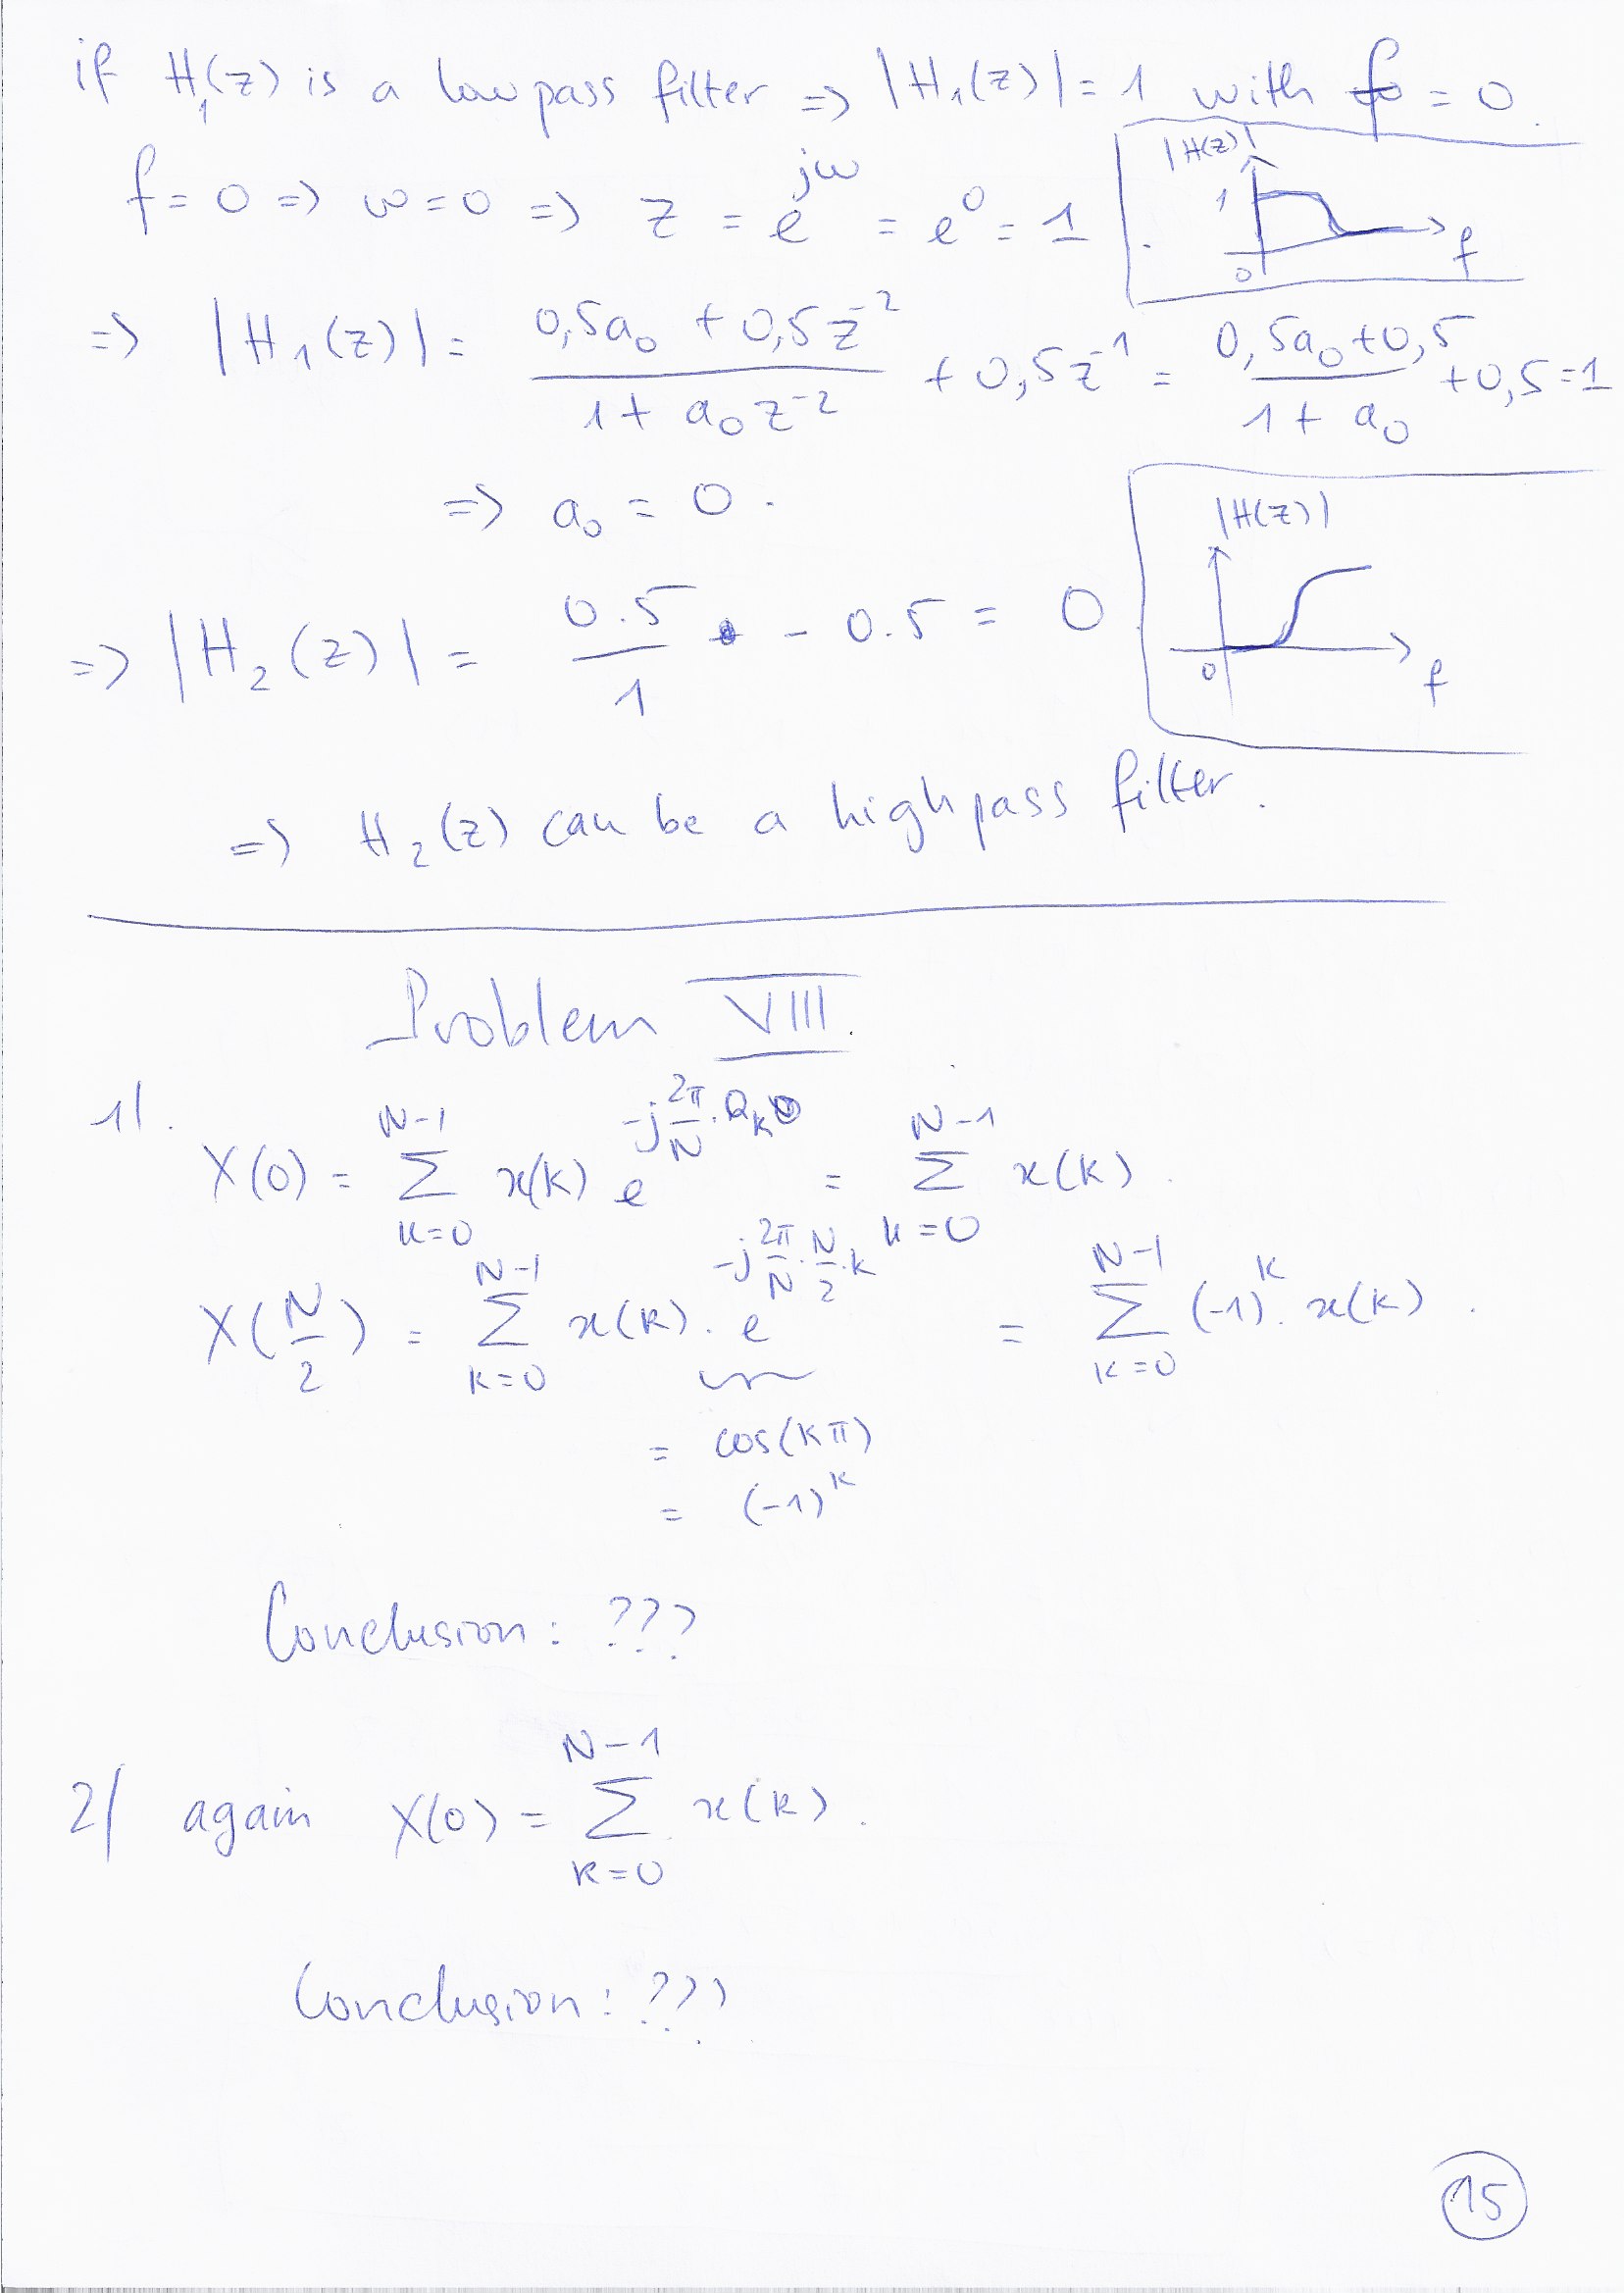 if H₁(z) is a low pass filter => |H₁(z)| = 1 with f = 0.
|H(z)|
1
0
f
f = 0 => ω = 0 => z = e^{jω} = e^0 = 1
=> |H₁(z)| = (0,5a₀ + 0,5z^{-2}) / (1 + a₀z^{-2}) + 0,5z^{-1} = (0,5a₀ + 0,5) / (1 + a₀) + 0,5 = 1
=> a₀ = 0.
|H(z)|
0
f
=> |H₂(z)| = 0.5/1 - 0.5 = 0
=> H₂(z) can be a high pass filter.
Problem VIII.
1/.
X(0) = Σ_{k=0}^{N-1} x(k) e^{-j 2π/N · 0k} = Σ_{k=0}^{N-1} x(k).
X(N/2) = Σ_{k=0}^{N-1} x(k). e^{-j 2π/N · N/2 · k} = Σ_{k=0}^{N-1} (-1)^k. x(k).
= cos(kπ)
= (-1)^k
Conclusion: ???
2/ again X(0) = Σ_{k=0}^{N-1} x(k).
Conclusion: ???
15